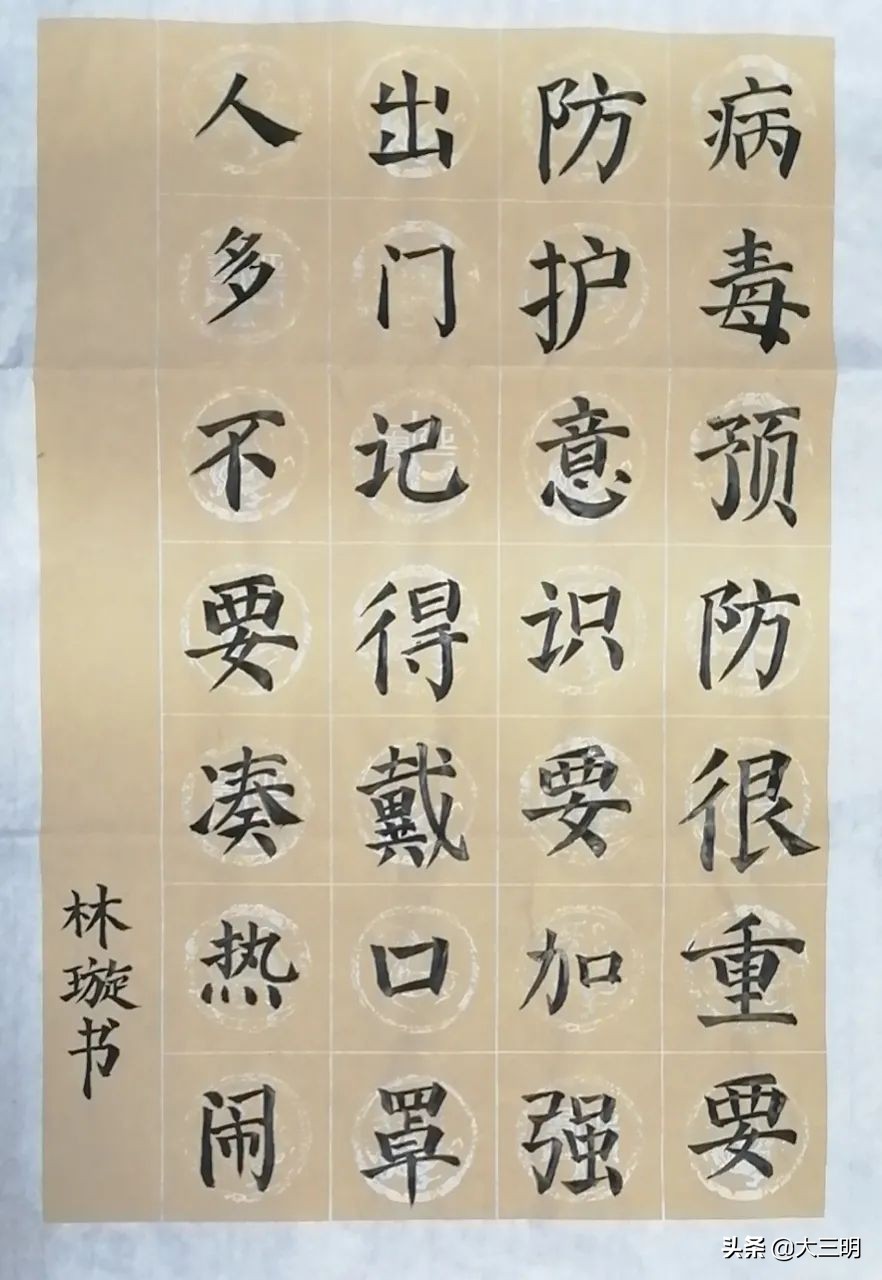 病毒预防很重要
防护意识要加强
出门记得戴口罩
人多不要凑热闹
林璇书
头条 @大三明